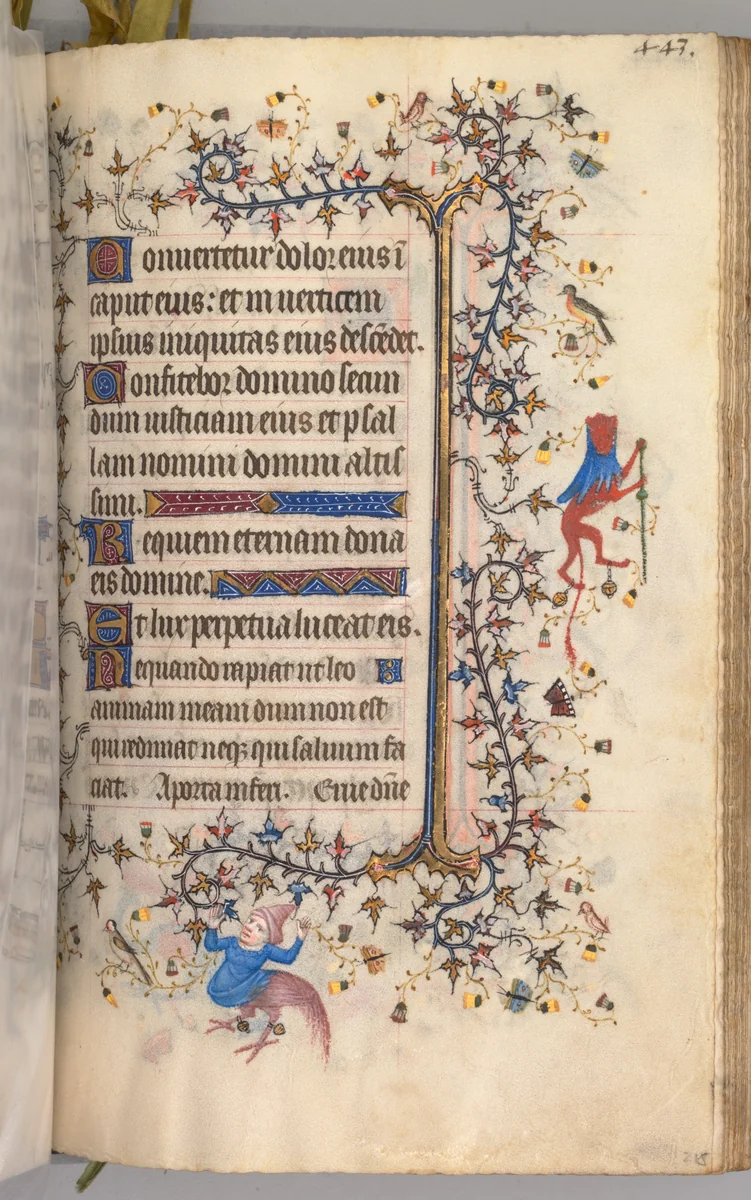 443.
Conuertetur dolor eius ī
caput eius: et in uerticem
ipsius iniquitas eius descēdet.
Confitebor domino secun
dum iusticiam eius et psal
lam nomini domini altis
simi.
Requiem eternam dona
eis domine.
Et lux perpetua luceat eis.
Nequando rapiat ut leo
animam meam dum non est
qui redimat neqꝫ qui saluum fa
ciat. A porta inferi. Erue dn̄e
218